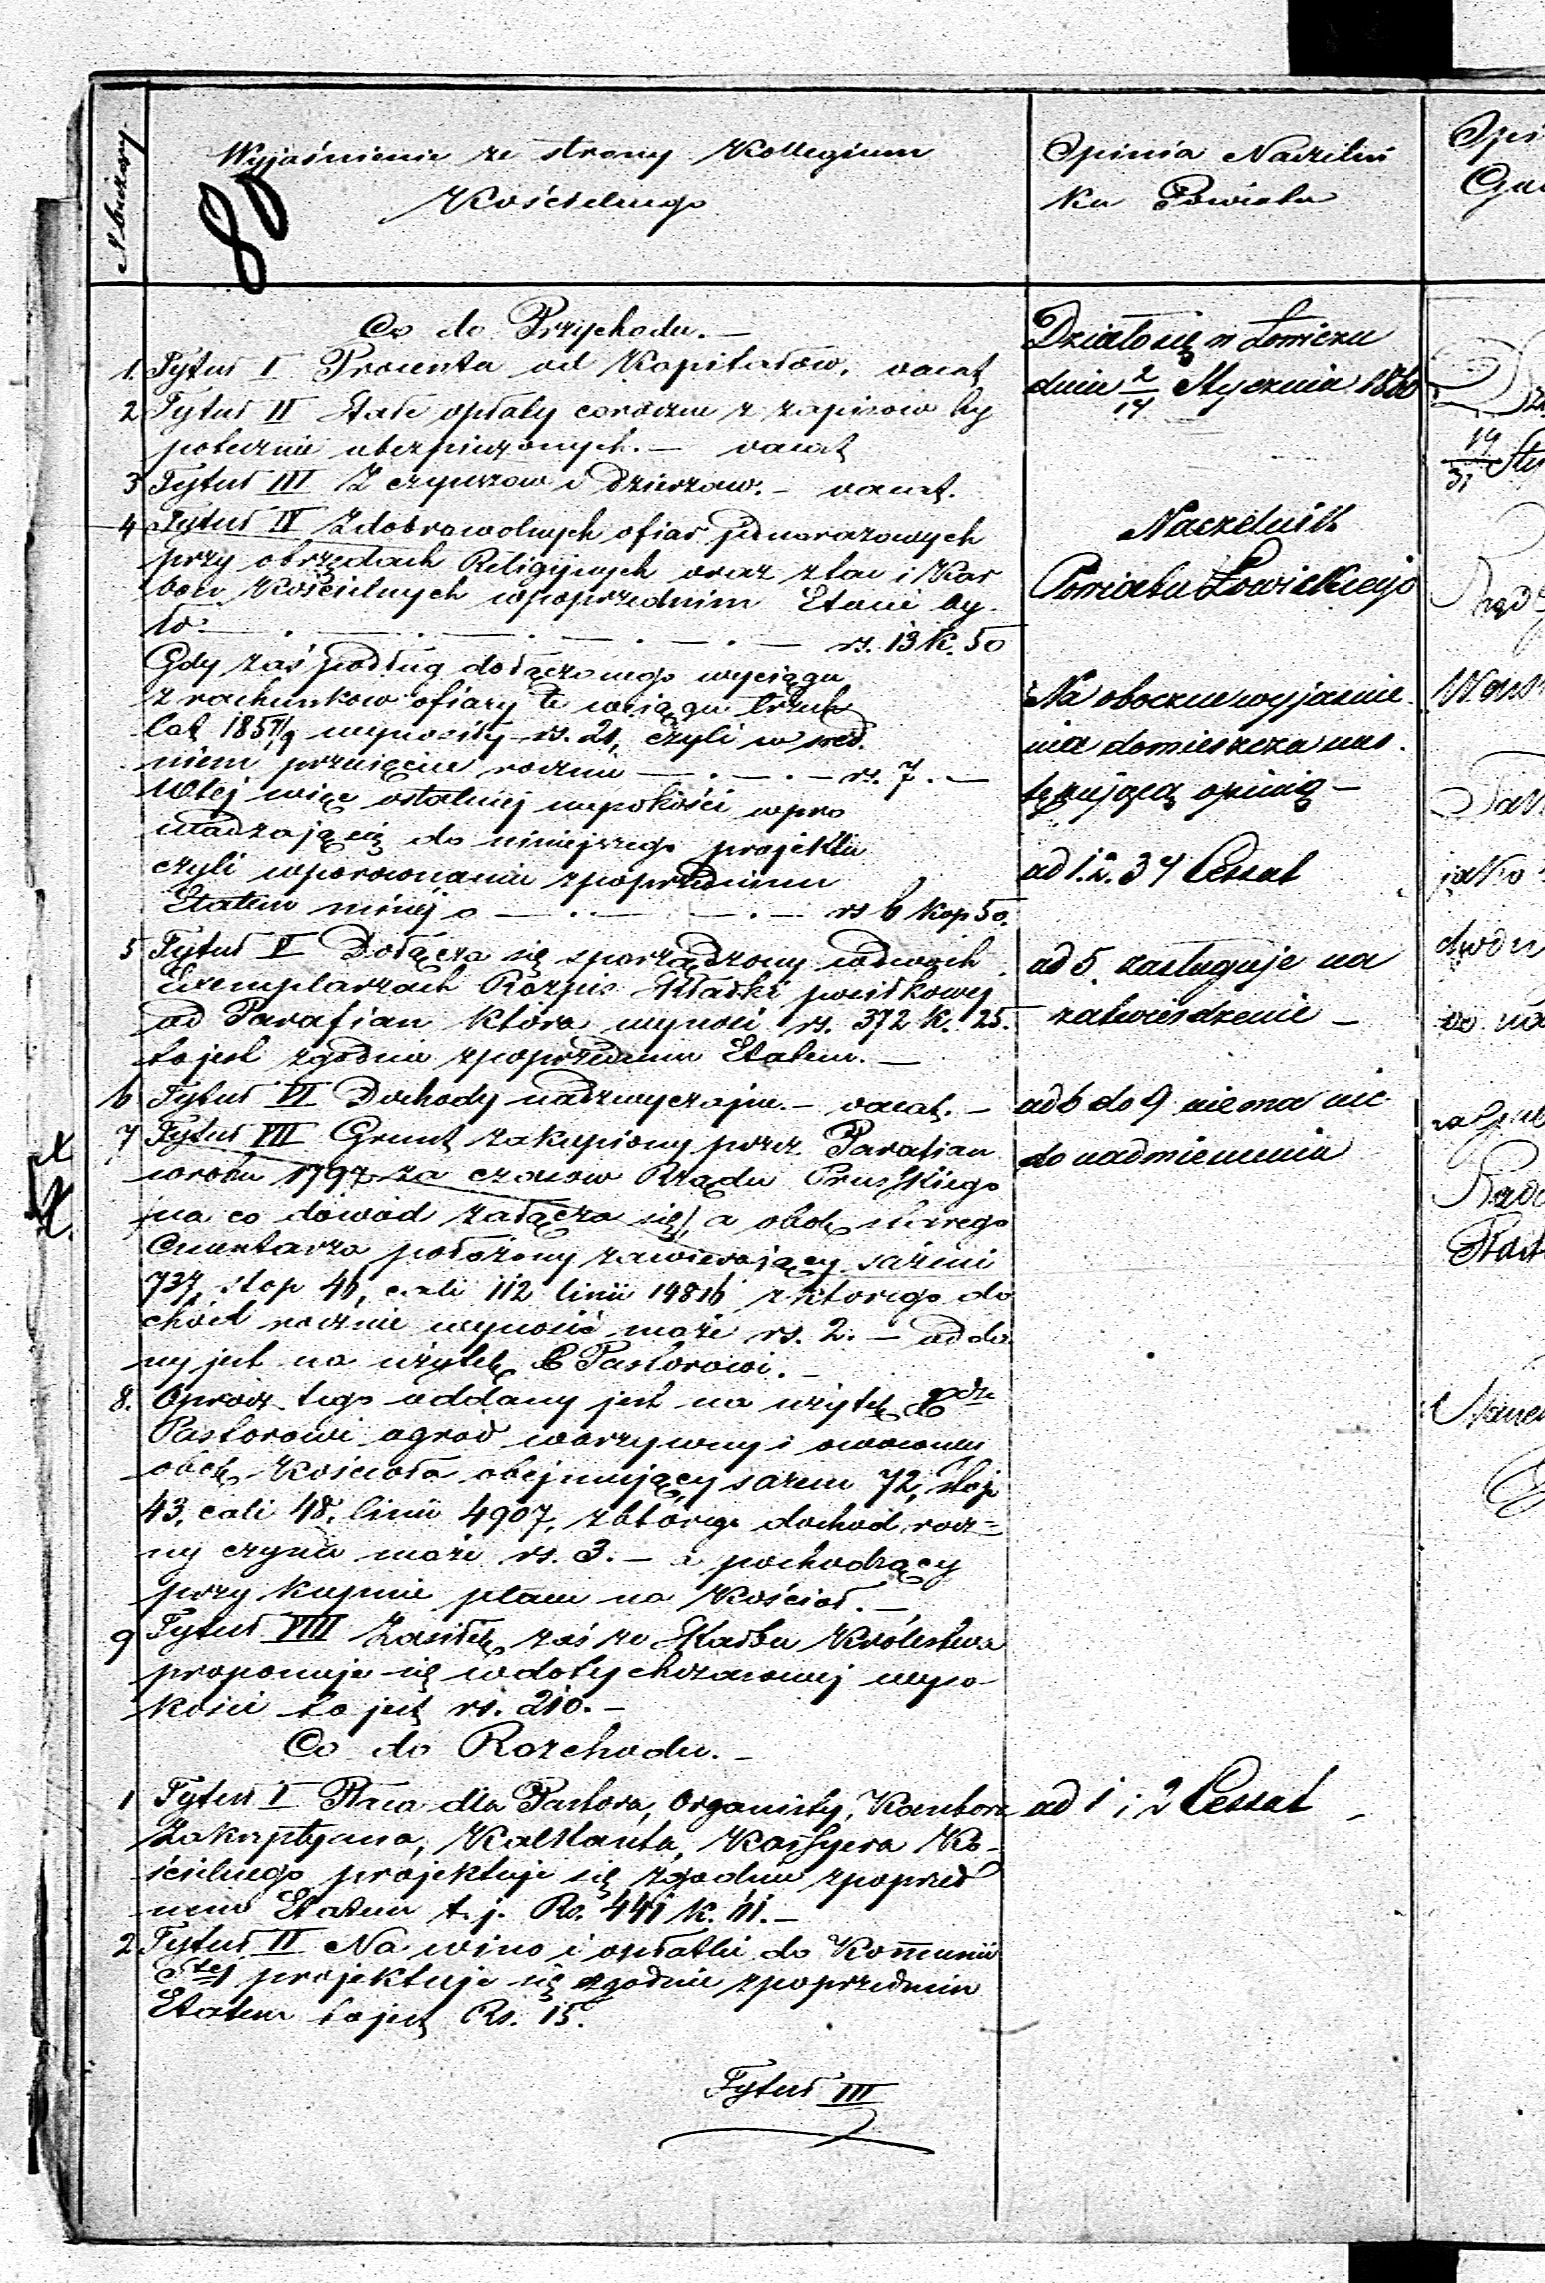 Numery
Wyjaśnienie ze strony Kollegium
Kościelnego
80
Opinia Naczelni
ka Powiatu
Co do Przychodu. —
1. Tytuł I Procenta od Kapitałów. vacat
2 Tytuł II Stałe opłaty coroczne z zapisów hy
potecznie ubezpieczonych. — vacat
3 Tytuł III Z czynszów i dzierżaw. — vacat.
4 Tytuł IV Z dobrowolnych ofiar jednorazowych
przy obrzędach Religijnych oraz z tac i Kar
bon Kościelnych w poprzednim Etacie by
ło — . — . — . — . — rs. 13 k. 50
Gdy zaś podług dołączonego wyciągu
z rachunków ofiary te w ciągu trzech
lat 1857/9 wynosiły rs. 21, czyli w śred
niem przecięciu rocznie — . — . — rs. 7. —
W tej więc ostatniej wysokości wpro
wadzają się do niniejszego projektu
czyli w porównaniu z poprzednim
Etatem mniej o — . — . — rs 6 kop 50.
5 Tytuł V Dołącza się sporządzony w dwóch
Exemplarzach Rozpis Składki posiłkowej
od Parafian która wynosi rs. 372 k. 25.
to jest zgodnie z poprzednim Etatem. —
6 Tytuł VI Dochody nadzwyczajne. — vacat. —
7 Tytuł VII Grunt zakupiony przez Parafian
w roku 1797 za czasów Rządu Pruskiego
na co dowód załącza się, a obok starego
Cmentarza położony zawierający sążeni
737, stop 46, cali 112 linii 1486 z którego do
chód rocznie wynosić może rs. 2. — odda
ny jest na użytek X Pastorowi. —
8. Oprócz tego oddany jest na użytek Xdzu
Pastorowi ogród warzywny i owocowy
obok Kościoła obejmujący sążeni 72, stop
43, cali 48, linii 4907, z którego dochód rocz=
ny czynić może rs. 3. — a pochodzący
przy kupnie placu na Kościoł. —
9 Tytuł VIII Zasiłek zaś ze Skarbu Królestwa
proponuje się w dotychczasowej wyso
kości to jest rs. 210. —
Co do Rozchodu. —
1 Tytuł I Płaca dla Pastora, Organisty, Kantora
Zakrystyana, Kalkanta, Kassyera Ko-
ścielnego projektuje się zgodnie z poprzed
nim Etatem t. j. Rs. 441 k.
2 Tytuł II Na wino i opłatki do Kommunii
Stej projektuje się zgodnie z poprzednim
Etatem to jest Rs. 15.
Tytuł III
Działo się w Łowiczu
dnia 2/14 Stycznia 1860
Naczelnik
Powiatu Łowickiego
Na oboczne wyjaśnie
nia domieszcza nas
tępującą opinią —
ad 1. 2. 3 4 Cessat
ad 5. zasługuje na
zatwierdzenie —
ad 6 do 9 niema nic
do nadmienienia
ad 1 i 2 Cessat —